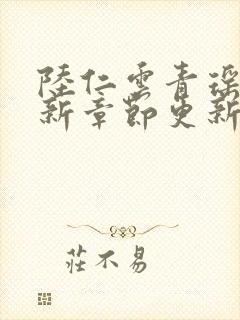 陸仁雲青瑤
新章節更新
莊不易